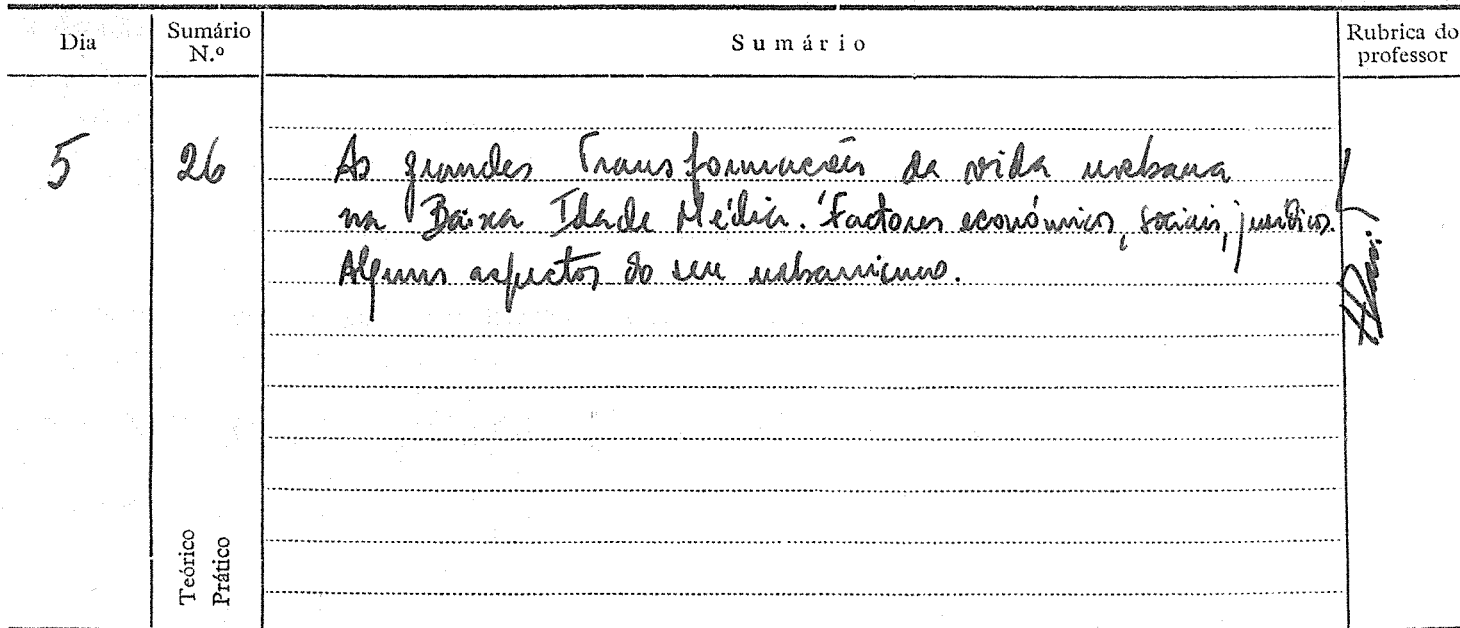 Dia
Sumário N.º
Sumário
Rubrica do professor
5
26
As grandes transformações da vida urbana
na Baixa Idade Média. Factores económicos, sociais, jurídicos.
Alguns aspectos do seu urbanismo.
Teórico
Prático